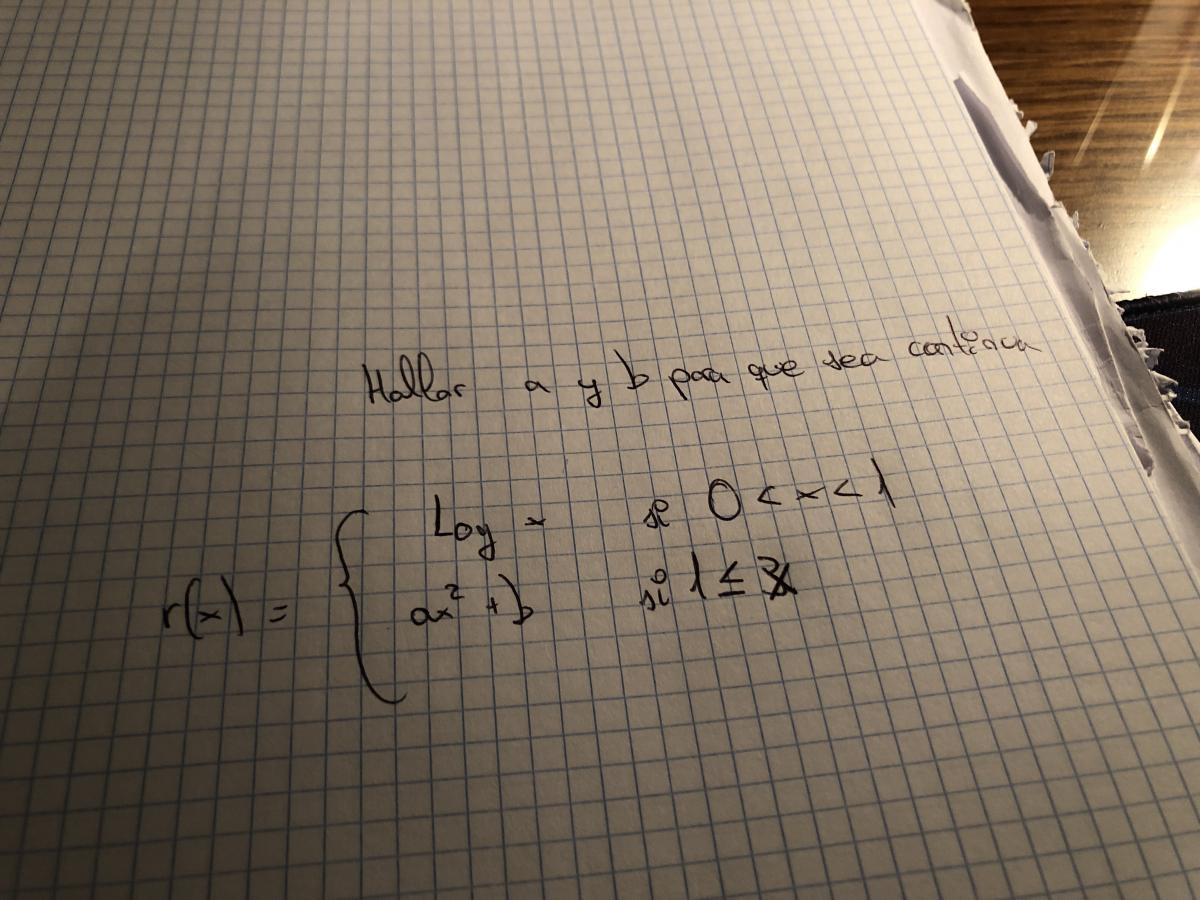 Hallar a y b para que sea continua
Log x si 0 < x < 1
r(x) = {
ax² + b si 1 ≤ x